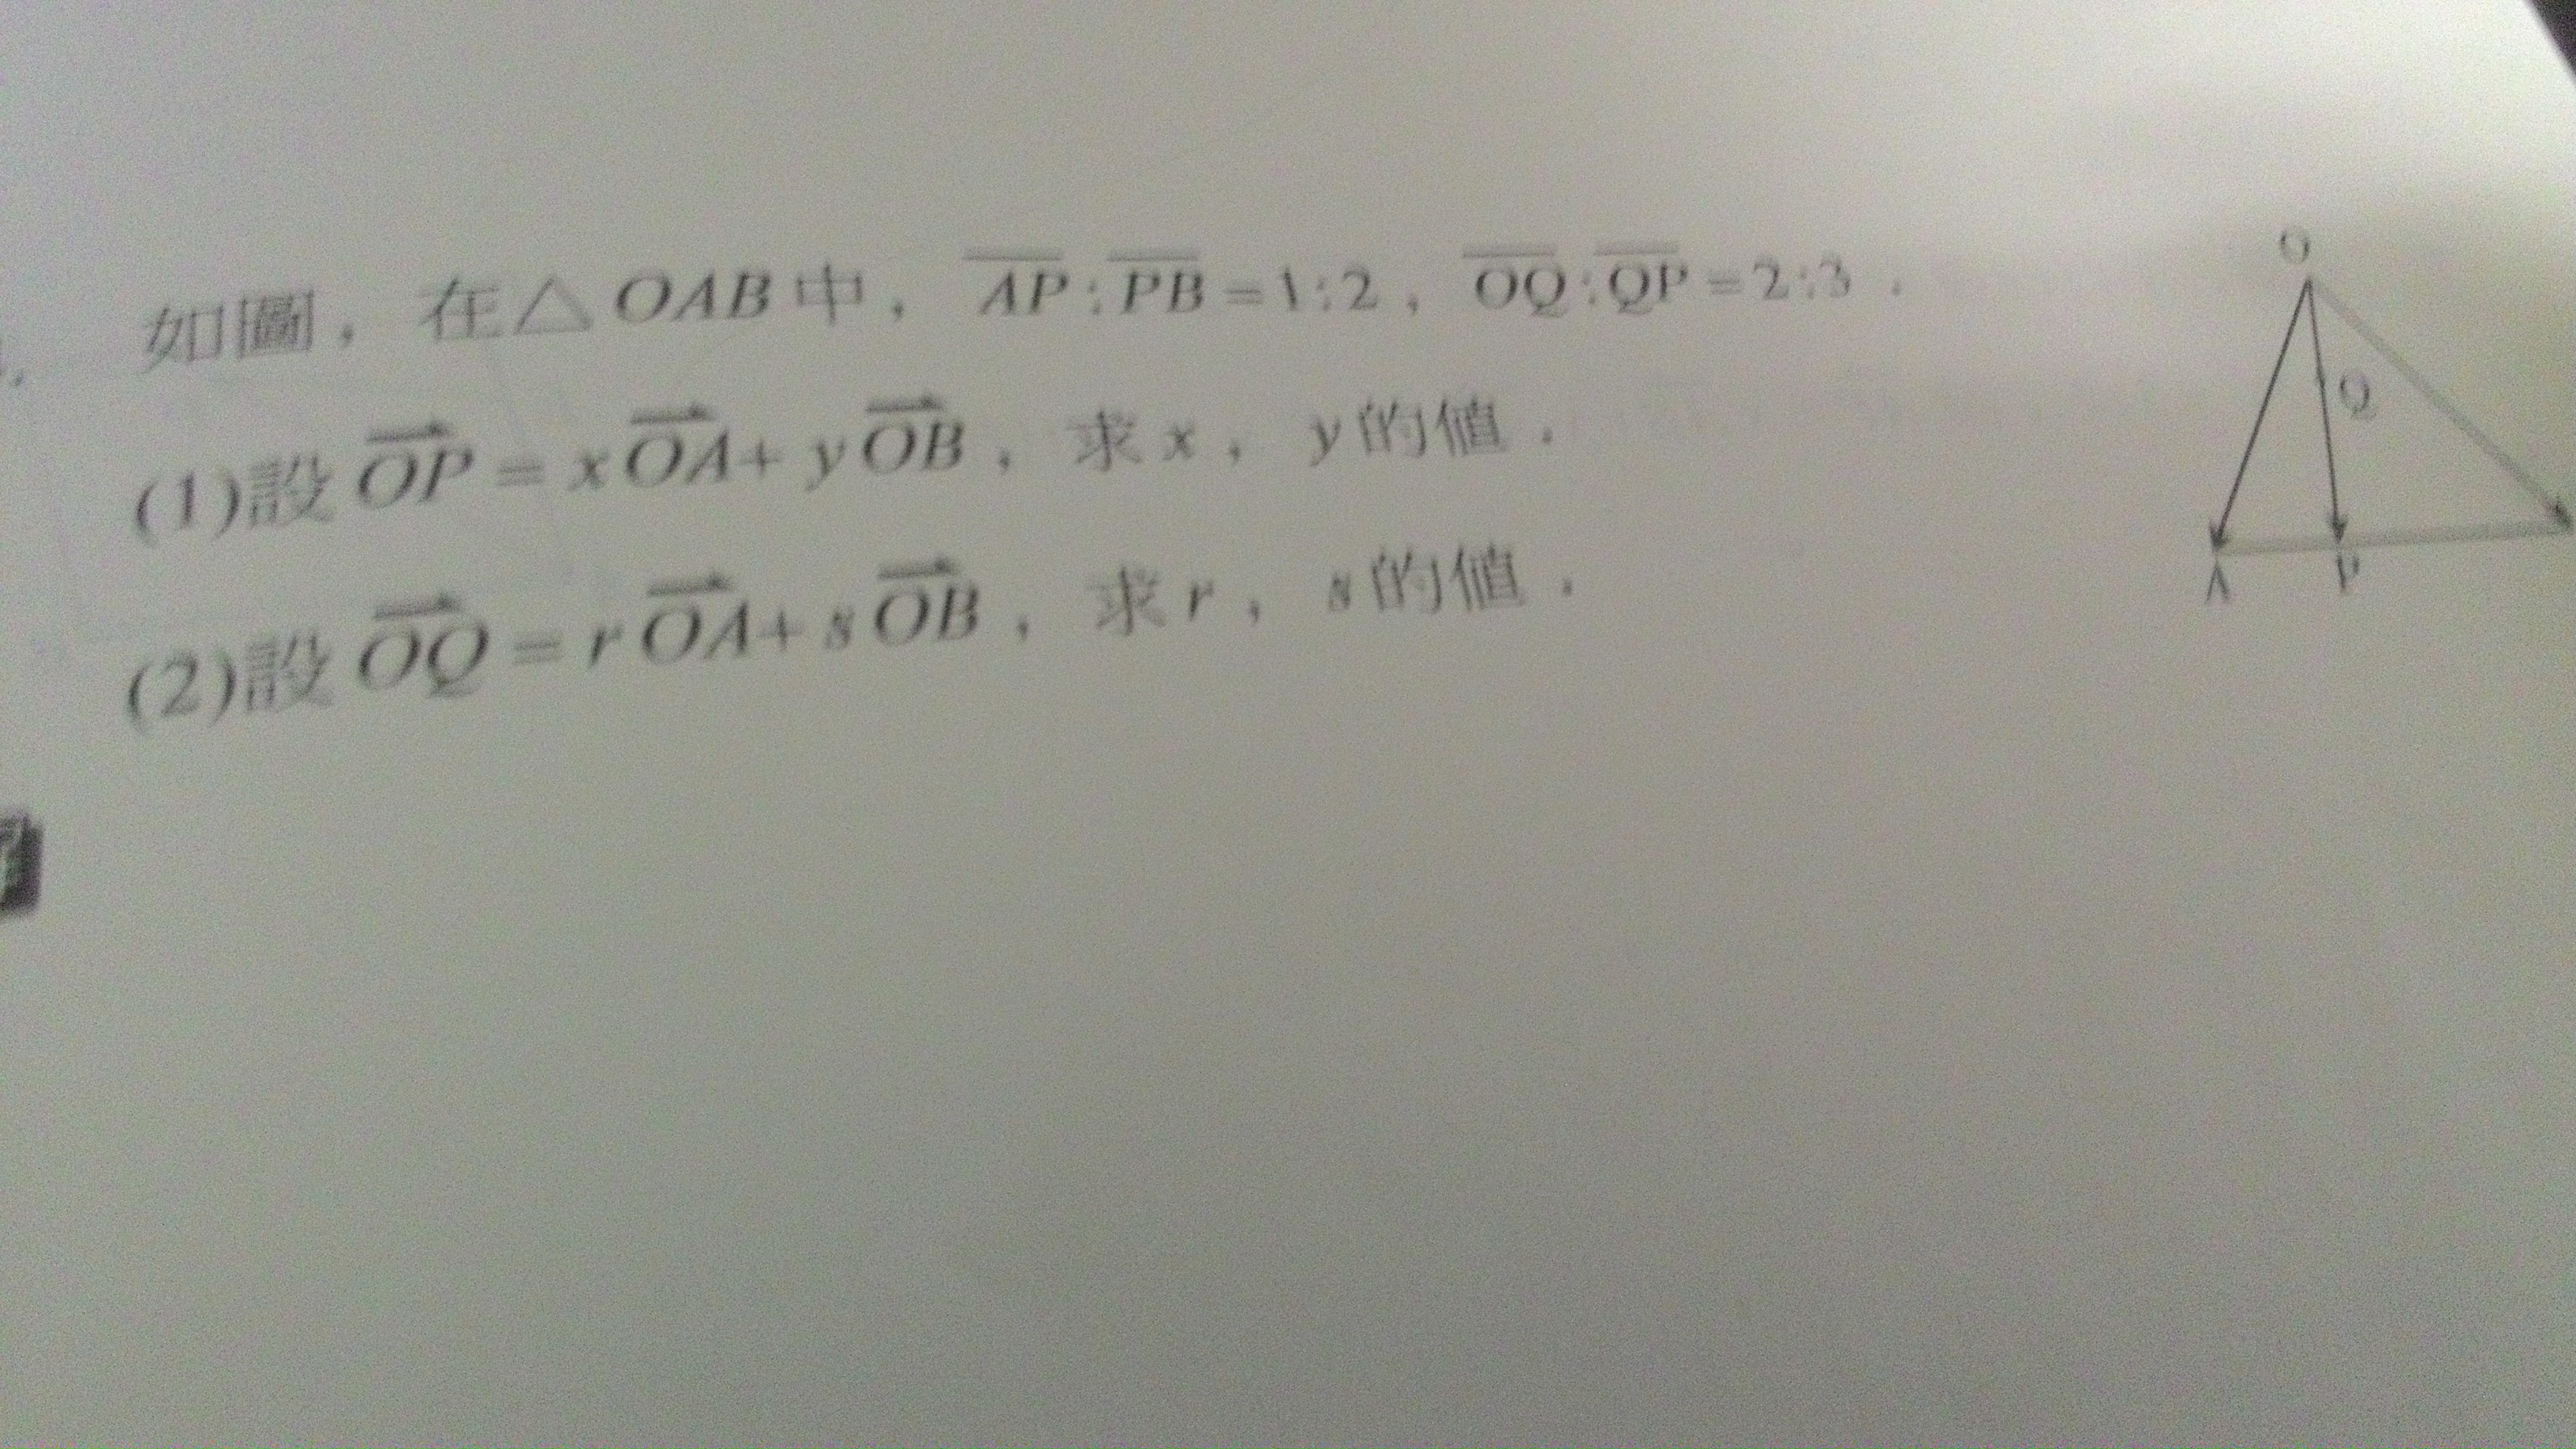 如圖，在△OAB中，AP:PB=1:2，OQ:QP=2:3．
(1)設OP=xOA+yOB，求x，y的值．
(2)設OQ=rOA+sOB，求r，s的值．
O
Q
A P